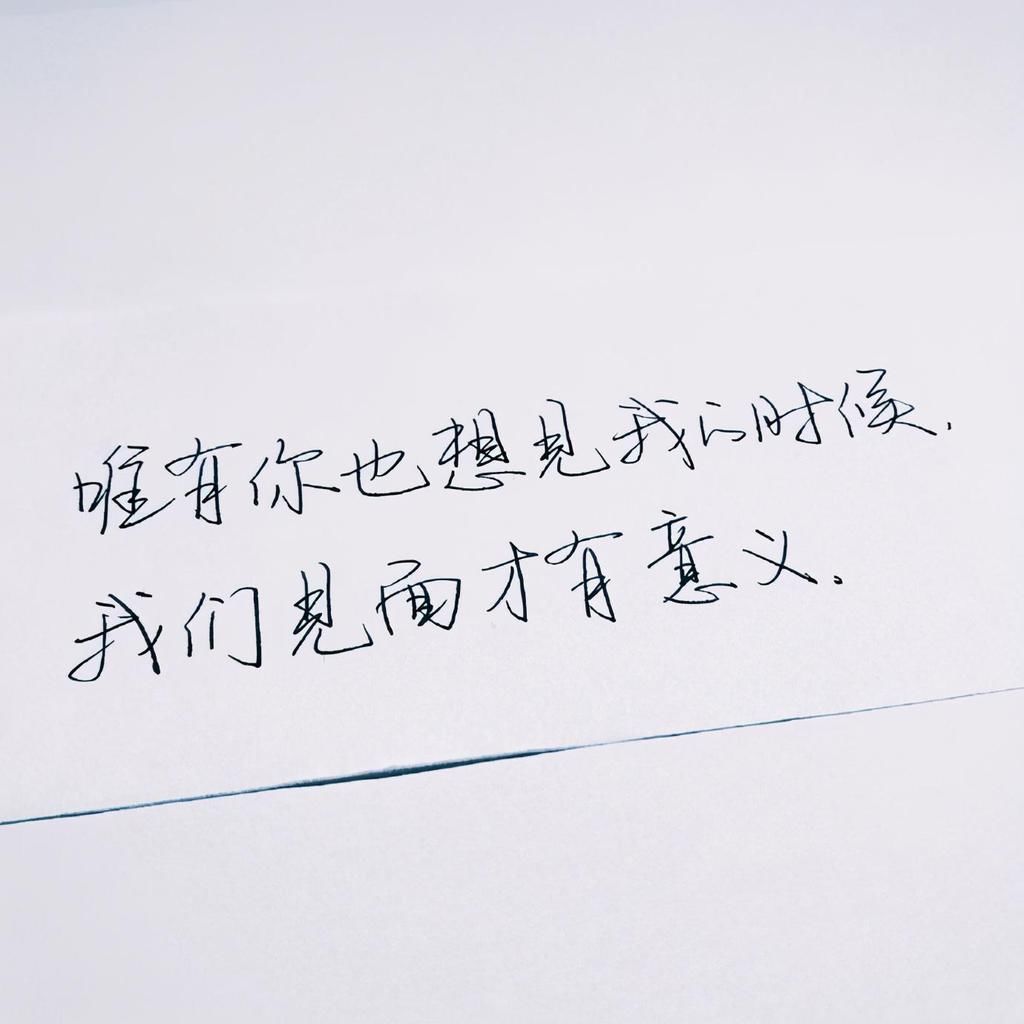 唯有你也想见我的时候.
我们见面才有意义.